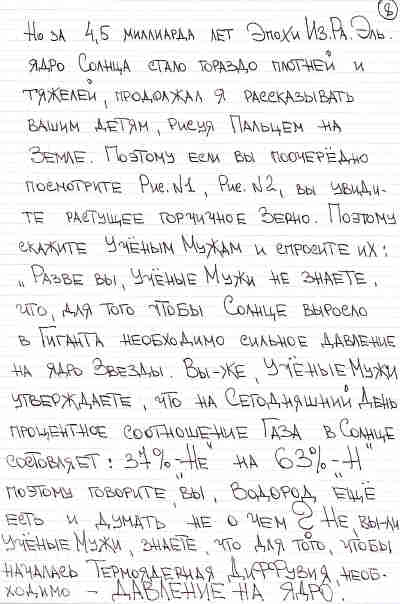 8
Но за 4,5 миллиарда лет Эпохи Из.Ра.Эль.
ядро Солнца стало гораздо плотней и
тяжелей, продолжал я рассказывать
вашим детям, рисуя Пальцем на
Земле. Поэтому если вы поочерёдно
посмотрите Рис.N1, Рис.N2, вы увиди-
те растущее горчичное Зерно. Поэтому
скажите Учёным Мужам и спросите их:
„Разве вы, Учёные Мужи не знаете,
что, для того чтобы Солнце выросло
в Гиганта необходимо сильное давление
на ядро Звезды. Вы-же, Учёные Мужи
утверждаете, что на Сегодняшний День
процентное соотношение Газа в Солнце
состовляет: 37%-„Не" на 63%-„Н"
поэтому говорите вы, Водород ещё
есть и думать не о чем? Не вы-ли
Учёные Мужи, знаете, что для того, чтобы
началась Термоядерная Диффузия, необ-
ходимо – ДАВЛЕНИЕ НА ЯДРО.